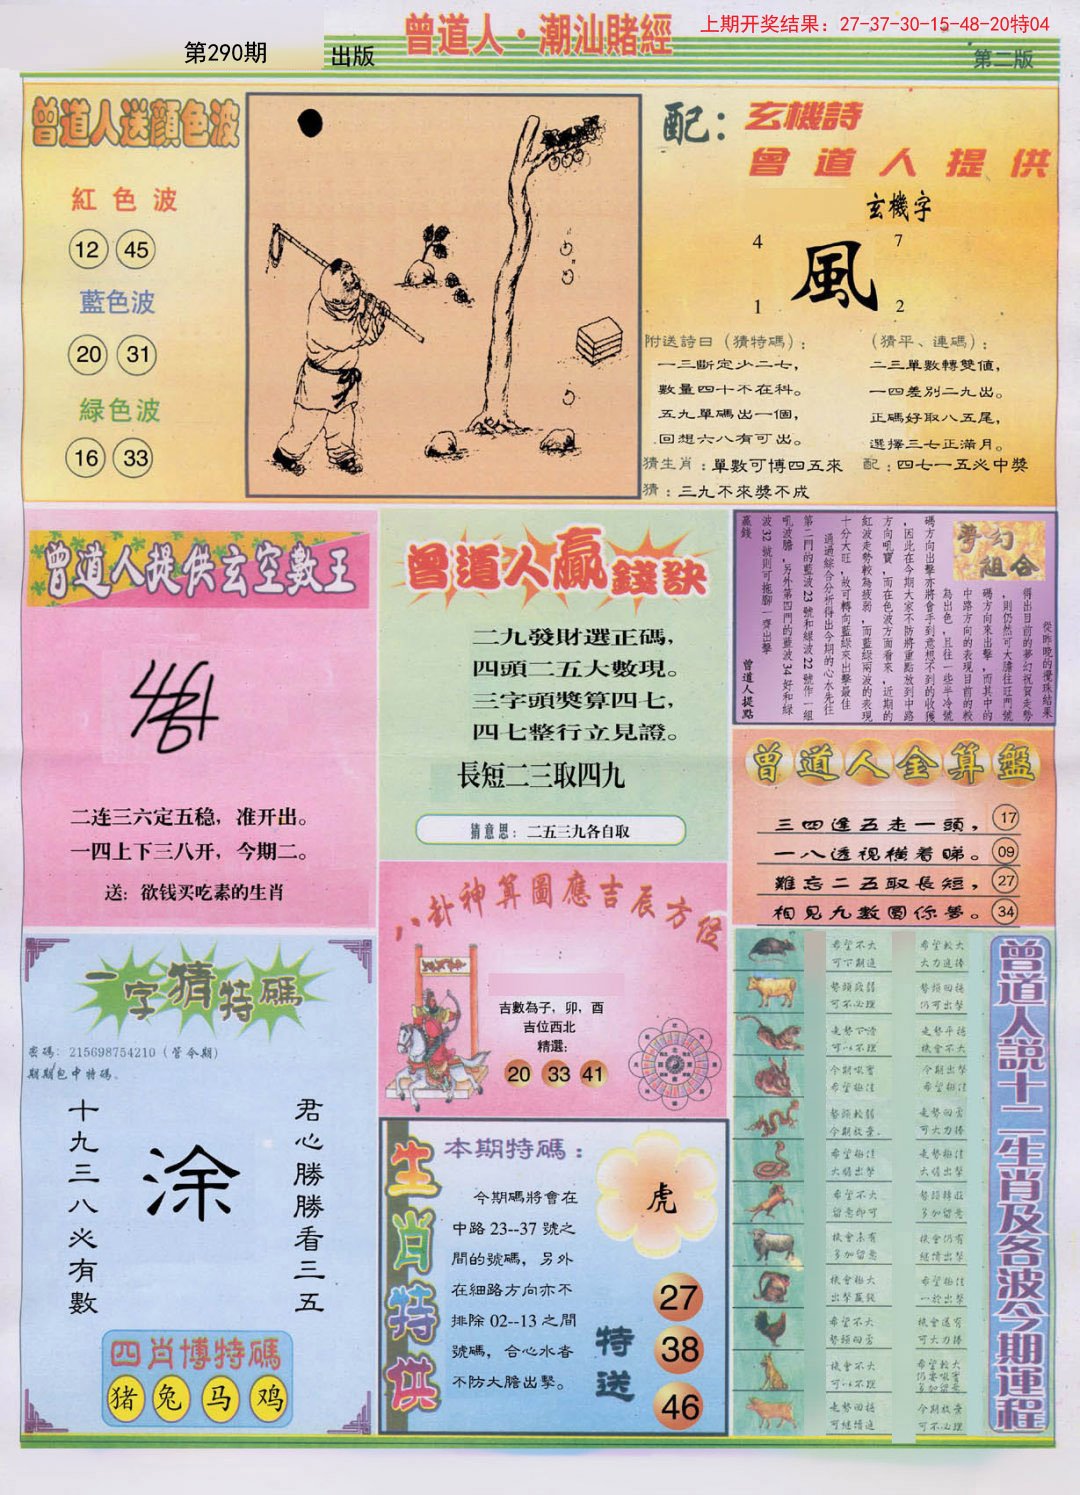 上期开奖结果：27-37-30-15-48-20特04
曾道人·潮汕賭經
第290期
出版
第二版
曾道人送顔色波
紅色波
12 45
藍色波
20 31
緑色波
16 33
配：玄機詩
曾道人提供
玄機字
4 7
風
1 2
附送詩曰（猜特碼）：
一三斷定少二七，
數量四十不在科。
五九單碼出一個，
回想六八有可出。
（猜平、連碼）：
二三單數轉雙值，
一四差別二九出。
正碼好取八五尾，
選擇三七正滿月。
猜生肖：單數可博四五來
配：四七一五必中獎
猜：三九不來獎不成
曾道人提供玄空數王
二连三六定五稳，准开出。
一四上下三八开，今期二。
送：欲钱买吃素的生肖
曾道人贏錢訣
二九發財選正碼，
四頭二五大數現。
三字頭獎算四七，
四七整行立見證。
長短二三取四九
猜意思：二五三九各自取
夢幻組合
從昨晚的攪珠結果
得出目前的夢幻祝賀走勢
，則仍然可大膽往旺門號
碼方向來出擊，而其中的
中路方向的表現目前的較
為出色，且往一些半冷號
碼方向出擊亦將會手到意想不到的收獲
，因此在今期大家不防將重點放到中路
方向吼實，而在色波方面看來，近期的
紅波走勢較為疲弱，而藍綠兩波的表現
十分大旺，故可轉向藍綠來出擊最佳
通過綜合分析得出今期的心水先往
第二門的藍波23號和綠波22號作一組
吼波膽，另外第四門的藍波34好和綠
波32號則可拖腳一齊出擊
贏錢
曾道人提點
曾道人全算盤
三四逢五走一頭，17
一八透視橫着睇。09
難忘二五取長短，27
相見九數圓你夢。34
八卦神算圖應吉辰方位
吉數為子，卯，酉
吉位西北
精選：
20 33 41
一字猜特碼
密碼：215698754210（管今期）
期期包中特碼、
君心勝勝看三五
涂
十九三八必有數
四肖博特碼
猪 兔 马 鸡
生肖特供
本期特碼：
今期碼將會在
中路23--37號之
間的號碼，另外
在細路方向亦不
排除02--13之間
號碼，合心水者
不防大膽出擊。
虎
特送
27
38
46
曾道人說十二生肖及各波今期運程
希望不大
可下期追
希望較大
大力追捧
勢頭疲弱
可不必理
勢頭回揚
仍可出擊
走勢下滑
可以不理
走勢平穩
機會不大
今期吼實
希望極佳
今期出擊
希望極佳
勢頭較弱
今期放棄、
走勢回勇
可大力捧
希望極佳
大膽出擊
走勢極佳
大膽出擊
希望不大
留意即可
勢頭轉旺
多加留意
機會未有
多加留意
機會仍有
繼續出擊
機會極大
出擊贏錢
希望極佳
一於出擊
希望不大
勢頭回勇
機會還有
可大力捧
機會不大
可以不理
希望較大
仍要吼實
多加留意
走勢回揚
可繼續追
今期放棄
可不必理